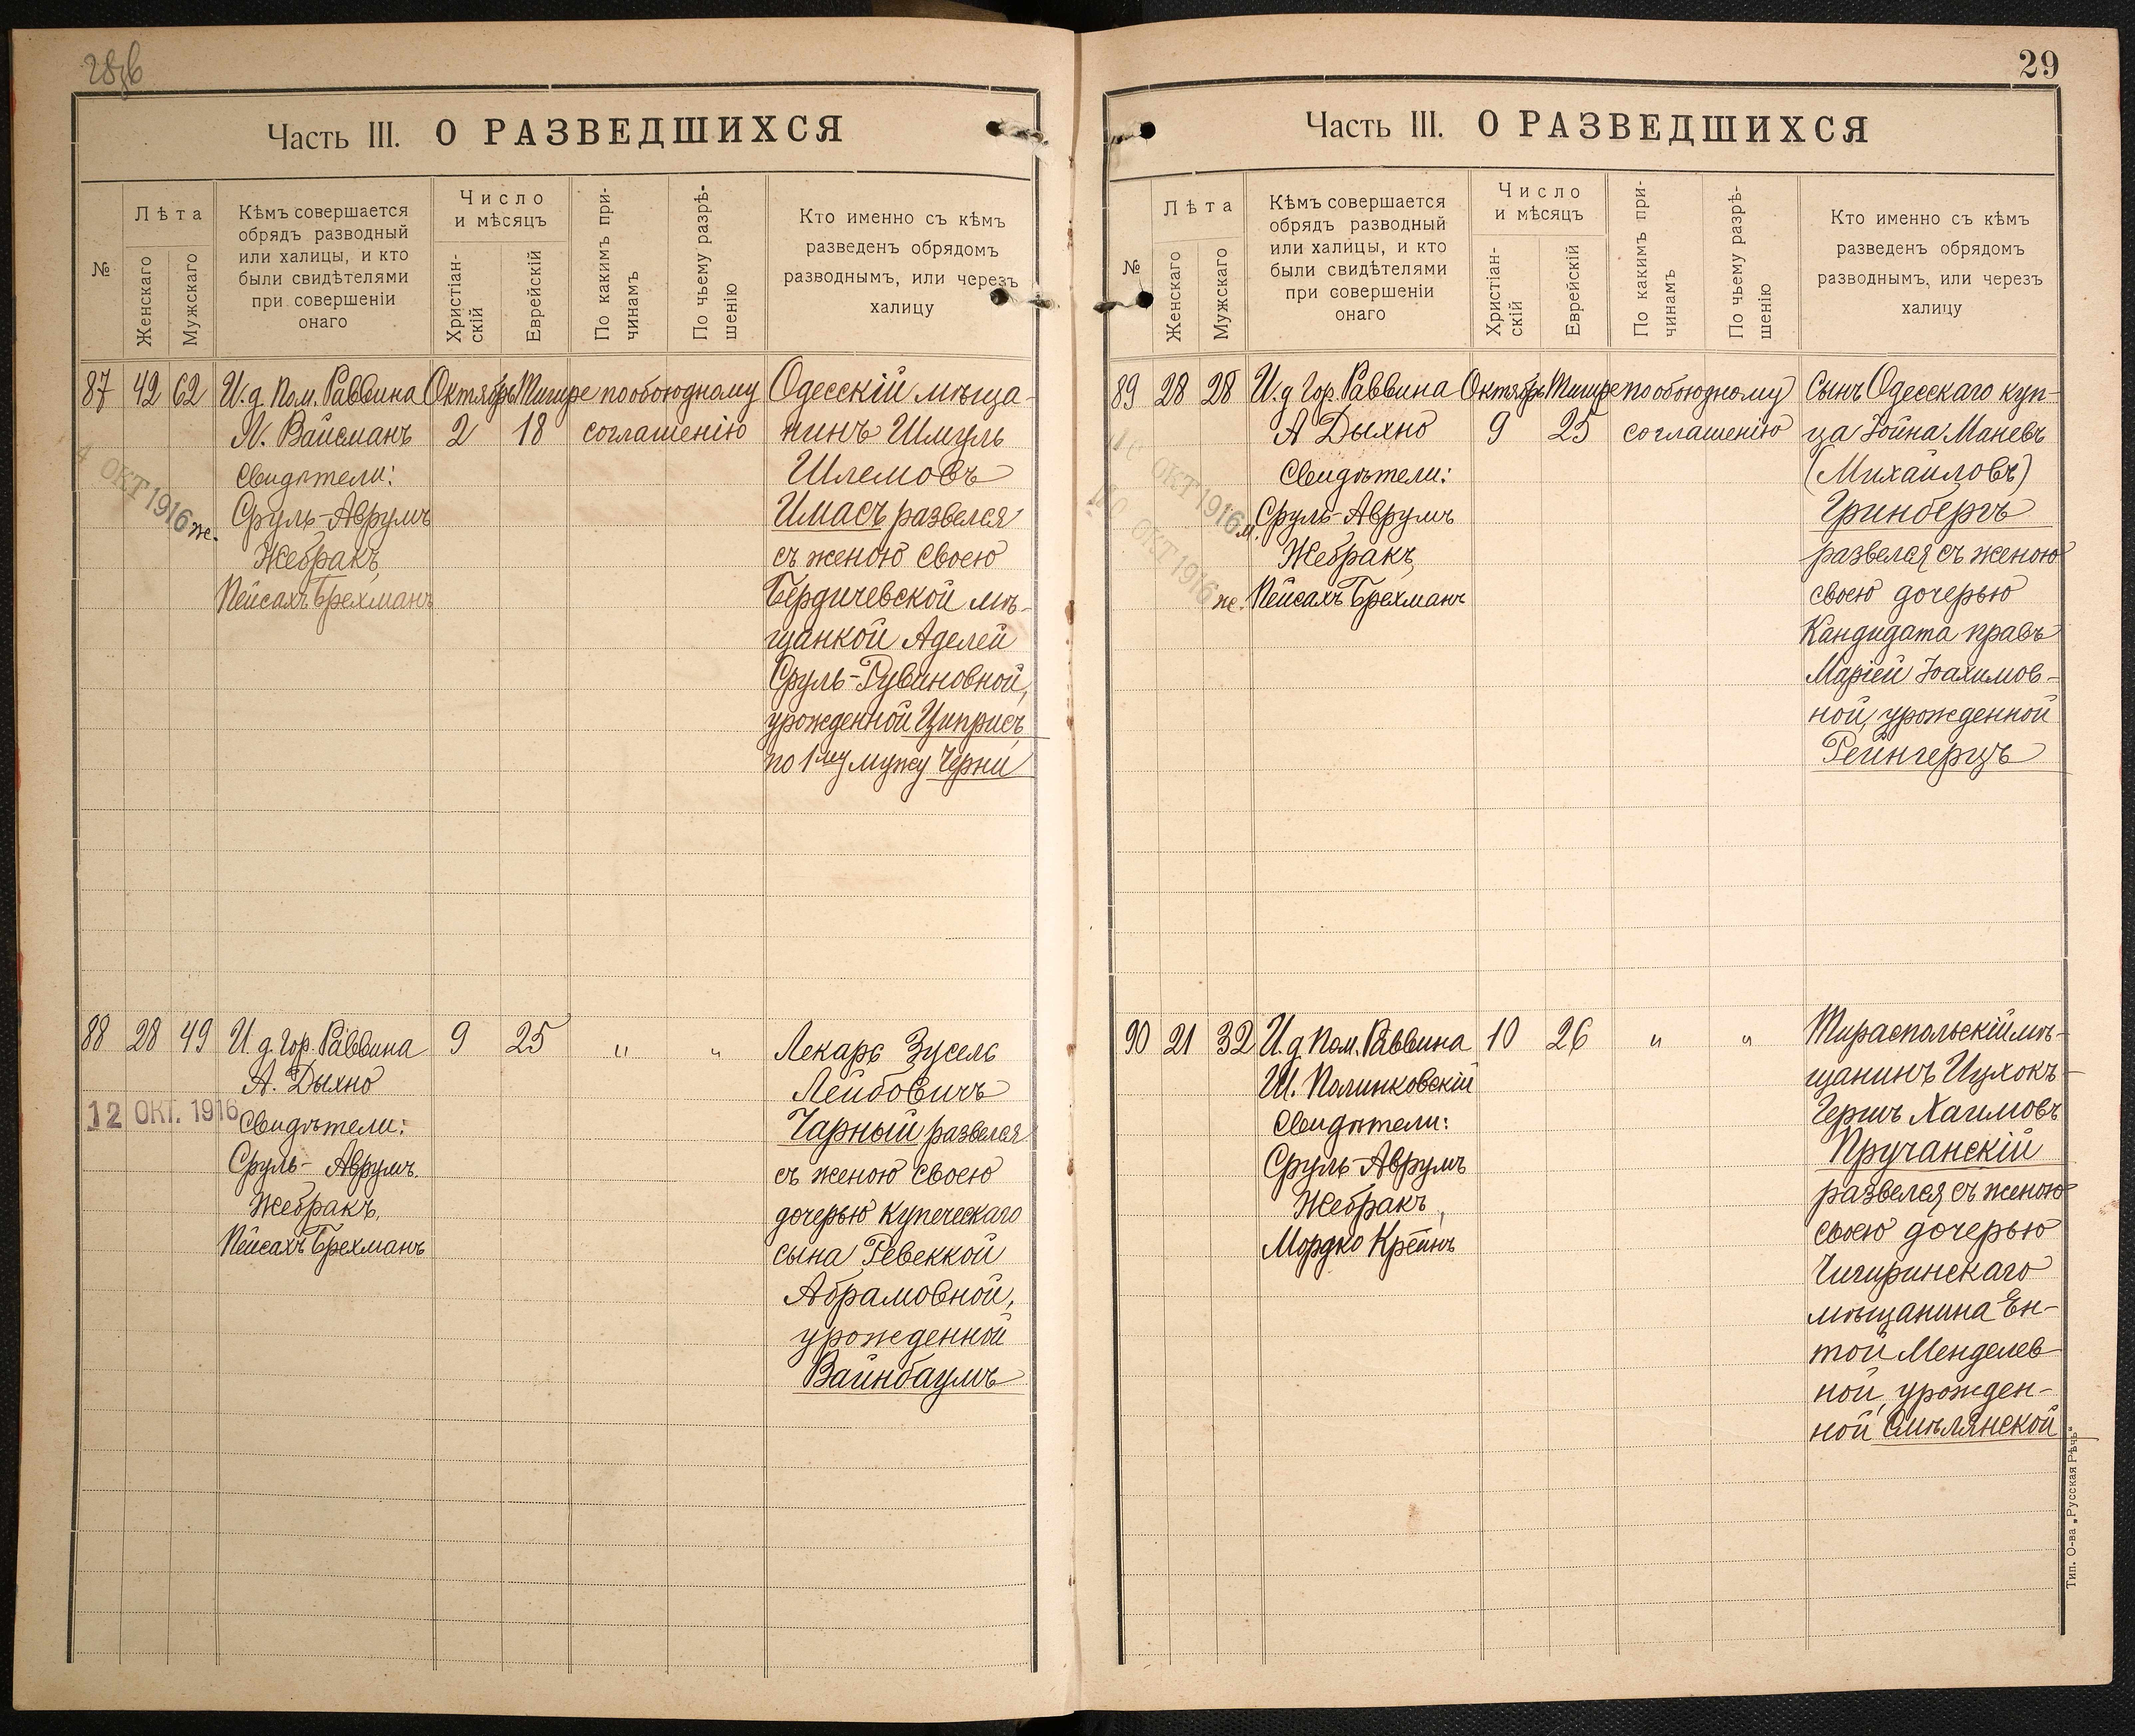 28
Часть III. О РАЗВЕДШИХСЯ
№
Лѣта
Женскаго
Мужскаго
Кѣмъ совершается
обрядъ разводный
или халицы, и кто
были свидѣтелями
при совершеніи
онаго
Число
и мѣсяцъ
Христіан-
скій
Еврейскій
По какимъ при-
чинамъ
По чьему разрѣ-
шенію
Кто именно съ кѣмъ
разведенъ обрядомъ
разводнымъ, или черезъ
халицу
87 42 62 И. д. Пом. Раввина Октябрь Тишре по обоюдному Одесскій мѣща-
Вайсманъ 2 18 соглашенію нинъ Шмуль
Свидѣтели: Шлемовъ
ОКТ 1916 ж. Сруль-Аврумъ Имасъ развелся
Жебракъ, съ женою своею
Пейсахъ Брехманъ Бердичевской мѣ-
щанкой Аделей
Сруль-Рувиновной,
урожденной Циприсъ,
по 1му мужу Черни
88 28 49 И. д. Гор. Раввина 9 25 " " Лекаръ Зусель
А. Дыхно Лейбовичъ
12 ОКТ. 1916 Свидѣтели: Чарный развелся
Сруль- Аврумъ съ женою своею
Жебракъ, дочерью купеческаго
Пейсахъ Брехманъ сына Ревеккой
Абрамовной,
урожденной
Вайнбаумъ
29
Часть III. О РАЗВЕДШИХСЯ
№
Лѣта
Женскаго
Мужскаго
Кѣмъ совершается
обрядъ разводный
или халицы, и кто
были свидѣтелями
при совершеніи
онаго
Число
и мѣсяцъ
Христіан-
скій
Еврейскій
По какимъ при-
чинамъ
По чьему разрѣ-
шенію
Кто именно съ кѣмъ
разведенъ обрядомъ
разводнымъ, или черезъ
халицу
89 28 28 И. д. Гор. Раввина Октябрь Тишре по обоюдному Сынъ Одесскаго куп-
А Дыхно 9 25 соглашенію ца Іойна Маневъ
Свидѣтели: (Михайловъ)
ОКТ 1916 м. Сруль-Аврумъ Гринбергъ
Жебракъ, развелся съ женою
ОКТ 1916 ж. Пейсахъ Брехманъ своею дочерью
Кандидата правъ
Маріей Іоахимов-
ной, урожденной
Рейнгерцъ
90 21 32 И. д. Пом. Раввина 10 26 " " Тираспольскій мѣ-
Ш. Полинковскій щанинъ Ицхокъ-
Свидѣтели: Гершъ Хаимовъ
Сруль-Аврумъ Пручанскій
Жебракъ, развелся съ женою
Мордко Крейнъ своею дочерью
Чигиринскаго
мѣщанина Ен-
той Менделев-
ной, урожден-
ной Смѣлянской
Тип. О-ва „Русская Рѣчь"